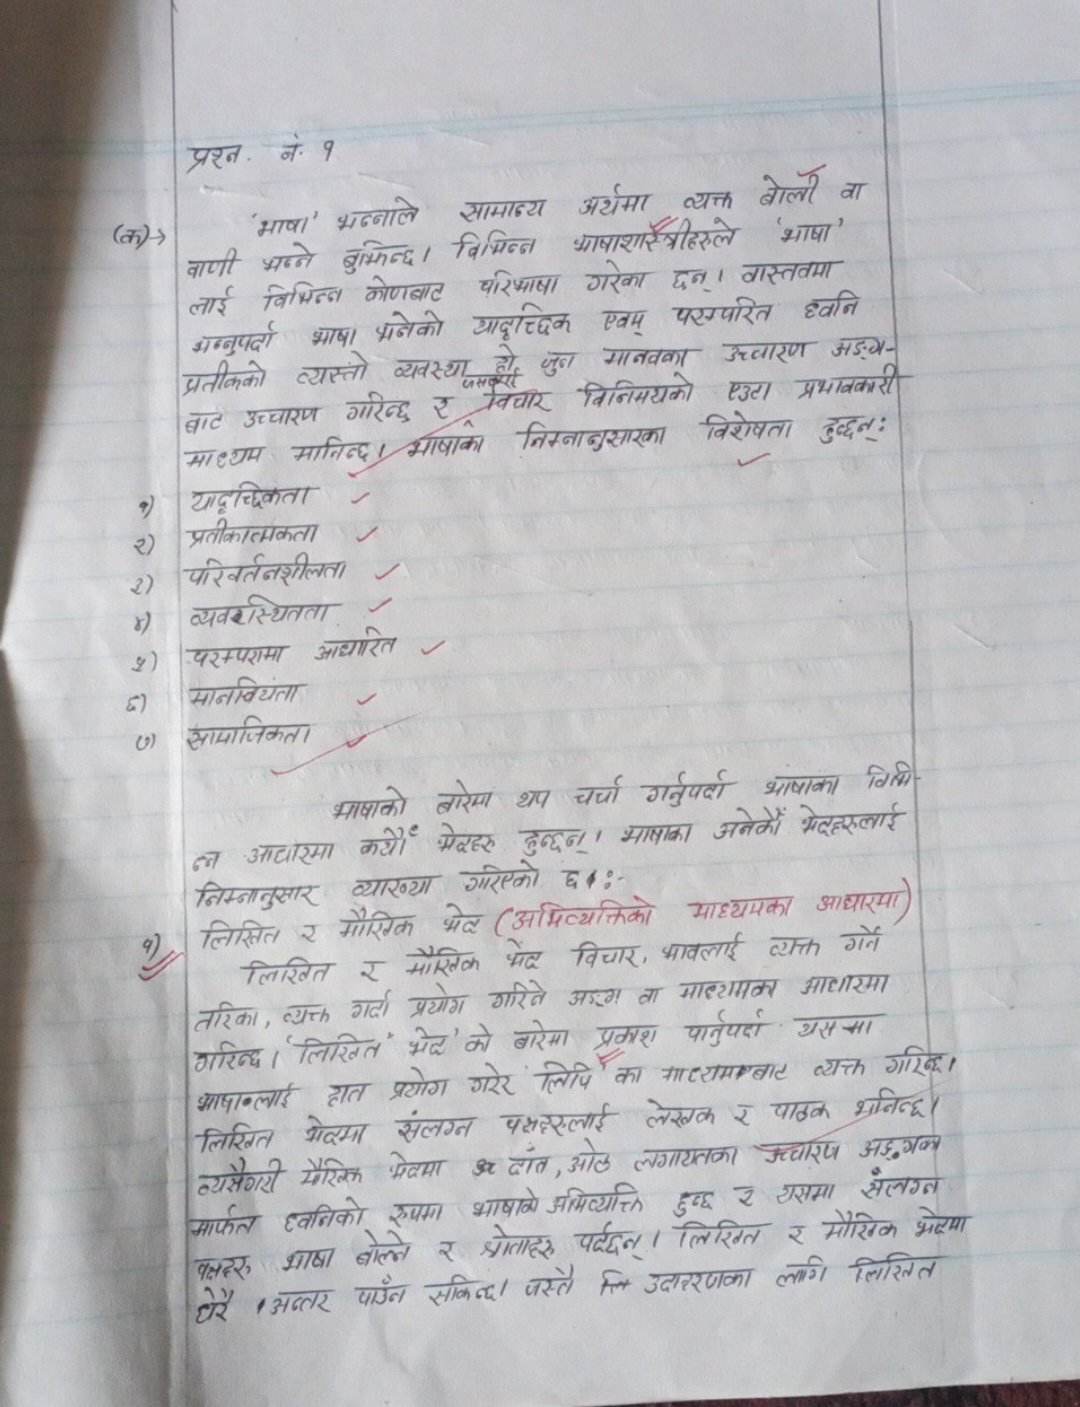 प्रश्न. नं. १
(क)→ 'भाषा' भन्नाले सामान्य अर्थमा व्यक्त बोली वा
वाणी भन्ने बुझिन्छ। विभिन्न भाषाशास्त्रीहरुले 'भाषा'
लाई विभिन्न कोणबाट परिभाषा गरेका छन्। वास्तवमा
भन्नुपर्दा भाषा भनेको यादृच्छिक एवम् परम्परित ध्वनि
प्रतीकको त्यस्तो व्यवस्था हो जुन मानवका उच्चारण अङ्ग-
बाट उच्चारण गरिन्छ र विचार विनिमयको एउटा प्रभावकारी
माध्यम मानिन्छ। भाषाका निम्नानुसारका विशेषता हुन्छन्:
१) यादृच्छिकता
२) प्रतीकात्मकता
३) परिवर्तनशीलता
४) व्यवस्थितता
५) परम्परामा आधारित
६) मानवियता
७) सामाजिकता
भाषाको बारेमा थप चर्चा गर्नुपर्दा भाषाका विभि-
न्न आधारमा कयौं भेदहरु हुन्छन्। भाषाका अनेकौं भेदहरुलाई
निम्नानुसार व्याख्या गरिएको छ।:-
१) लिखित र मौखिक भेद (अभिव्यक्तिको माध्यमका आधारमा)
लिखित र मौखिक भेद विचार, भावलाई व्यक्त गर्ने
तरिका, व्यक्त गर्दा प्रयोग गरिने अङ्ग वा माध्यमका आधारमा
गरिन्छ। 'लिखित भेद' को बारेमा प्रकाश पार्नुपर्दा यसमा
भाषालाई हात प्रयोग गरेर 'लिपि' का माध्यमबाट व्यक्त गरिन्छ।
लिखित भेदमा संलग्न पक्षहरुलाई लेखक र पाठक भनिन्छ।
त्यसैगरी मौखिक भेदमा दाँत, ओठ लगायतका उच्चारण अङ्गका
मार्फत ध्वनिको रुपमा भाषाको अभिव्यक्ति हुन्छ र यसमा संलग्न
पक्षहरु भाषा बोल्ने र श्रोताहरु पर्दछन्। लिखित र मौखिक भेदमा
धेरै अन्तर पाउँन सकिन्छ। जस्तै उदाहरणका लागि लिखित